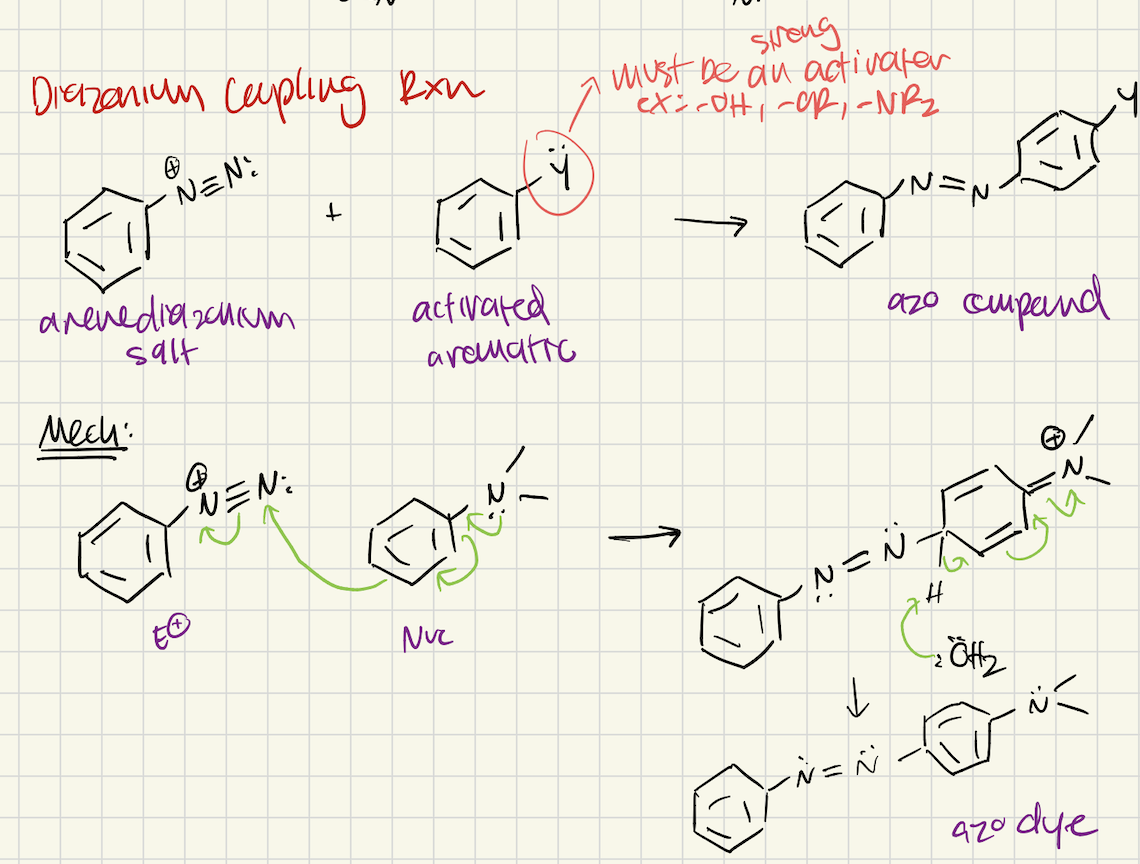 strong
Diazonium Coupling Rxn
must be an activater
ex: -OH, -OR, -NR2
Y
⊕
N≡N:
Ÿ
+
N=N
arenediazonium
salt
activated
aromatic
azo compound
Mech:
⊕
N≡N:
N
⊕
N
N=N
H
:ÖH2
E⊕
Nuc
N
N=N
azo dye